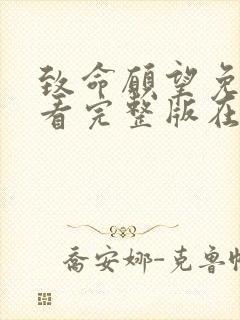 致命愿望免
看完整版在
乔安娜-克鲁